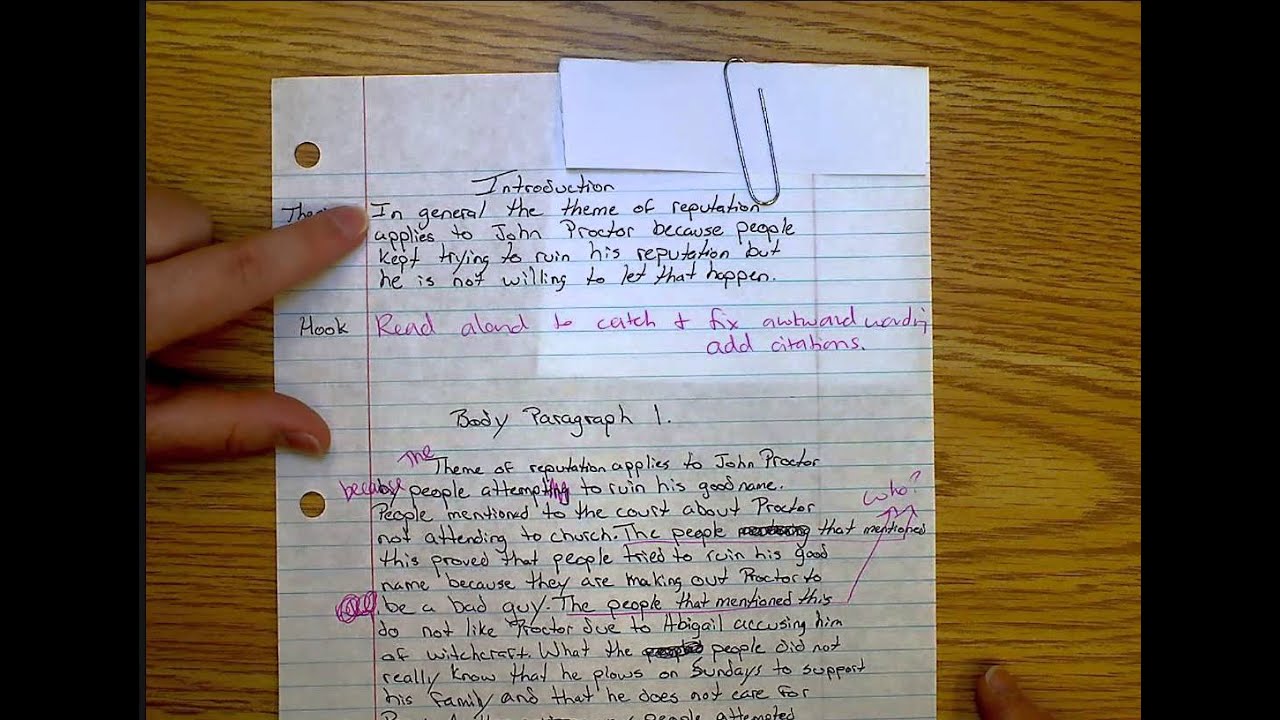 Introduction
In general the theme of reputation
applies to John Proctor because people
kept trying to ruin his reputation but
he is not willing to let that happen.
Hook Read aloud to catch + fix awkward wording
add citations.
Body Paragraph 1.
The Theme of reputation applies to John Proctor
because by people attempting to ruin his good name.
who?
People mentioned to the court about Proctor
not attending to church. The people that mentioned
this proved that people tried to ruin his good
name because they are making out Proctor to
be a bad guy. The people that mentioned this
do not like Proctor due to Abigail accusing him
of witchcraft. What the people did not
really know that he plows on Sundays to support
his family and that he does not care for
people attempted